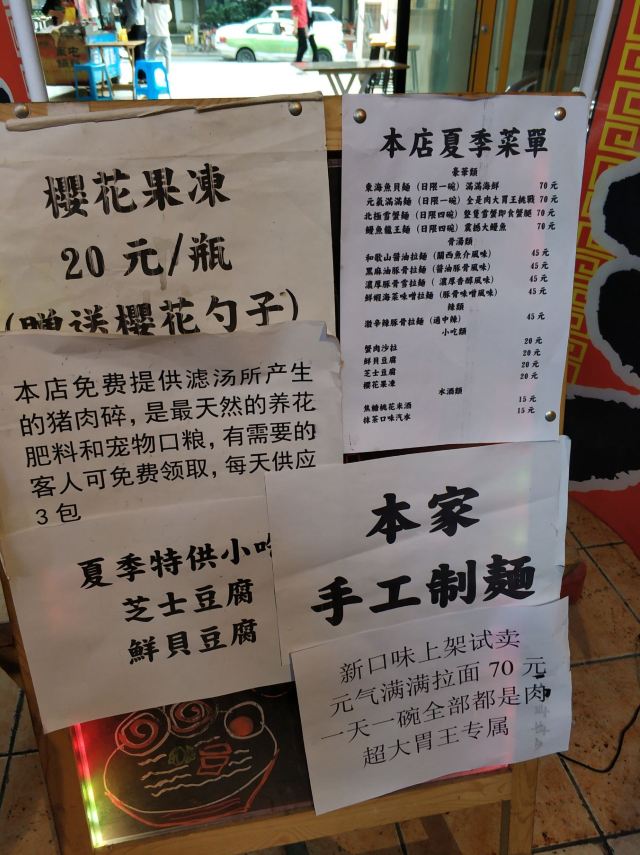 櫻花果凍
20 元/瓶
(贈送櫻花勺子)
本店免费提供滤汤所产生
的猪肉碎,是最天然的养花
肥料和宠物口粮,有需要的
客人可免费领取,每天供应
3 包
夏季特供小吃
芝士豆腐
鮮貝豆腐
本店夏季菜單
豪華類
東海魚貝麵(日限一碗)滿滿海鮮 70 元
元氣滿滿麵(日限一碗)全是肉大胃王挑戰 70 元
北極雪蟹麵(日限四碗)整隻雪蟹即食蟹腿 70 元
鰻魚龍王麵(日限四碗)震撼大鰻魚 70 元
骨湯類
和歌山醬油拉麵(關西魚介風味) 45 元
黑麻油豚骨拉麵(醬油豚骨風味) 45 元
濃厚豚骨雪拉麵(濃厚香醇風味) 45 元
鮮蝦海菜味噌拉麵(豚骨味噌風味) 45 元
辣類
激辛辣豚骨拉麵(過中辣) 45 元
小吃類
蟹肉沙拉 20 元
鮮貝豆腐 20 元
芝士豆腐 20 元
櫻花果凍 20 元
水酒類
焦糖桃花米酒 15 元
抹茶口味汽水 15 元
本家
手工制麵
新口味上架试卖
元气满满拉面 70 元
一天一碗全部都是肉
超大胃王专属